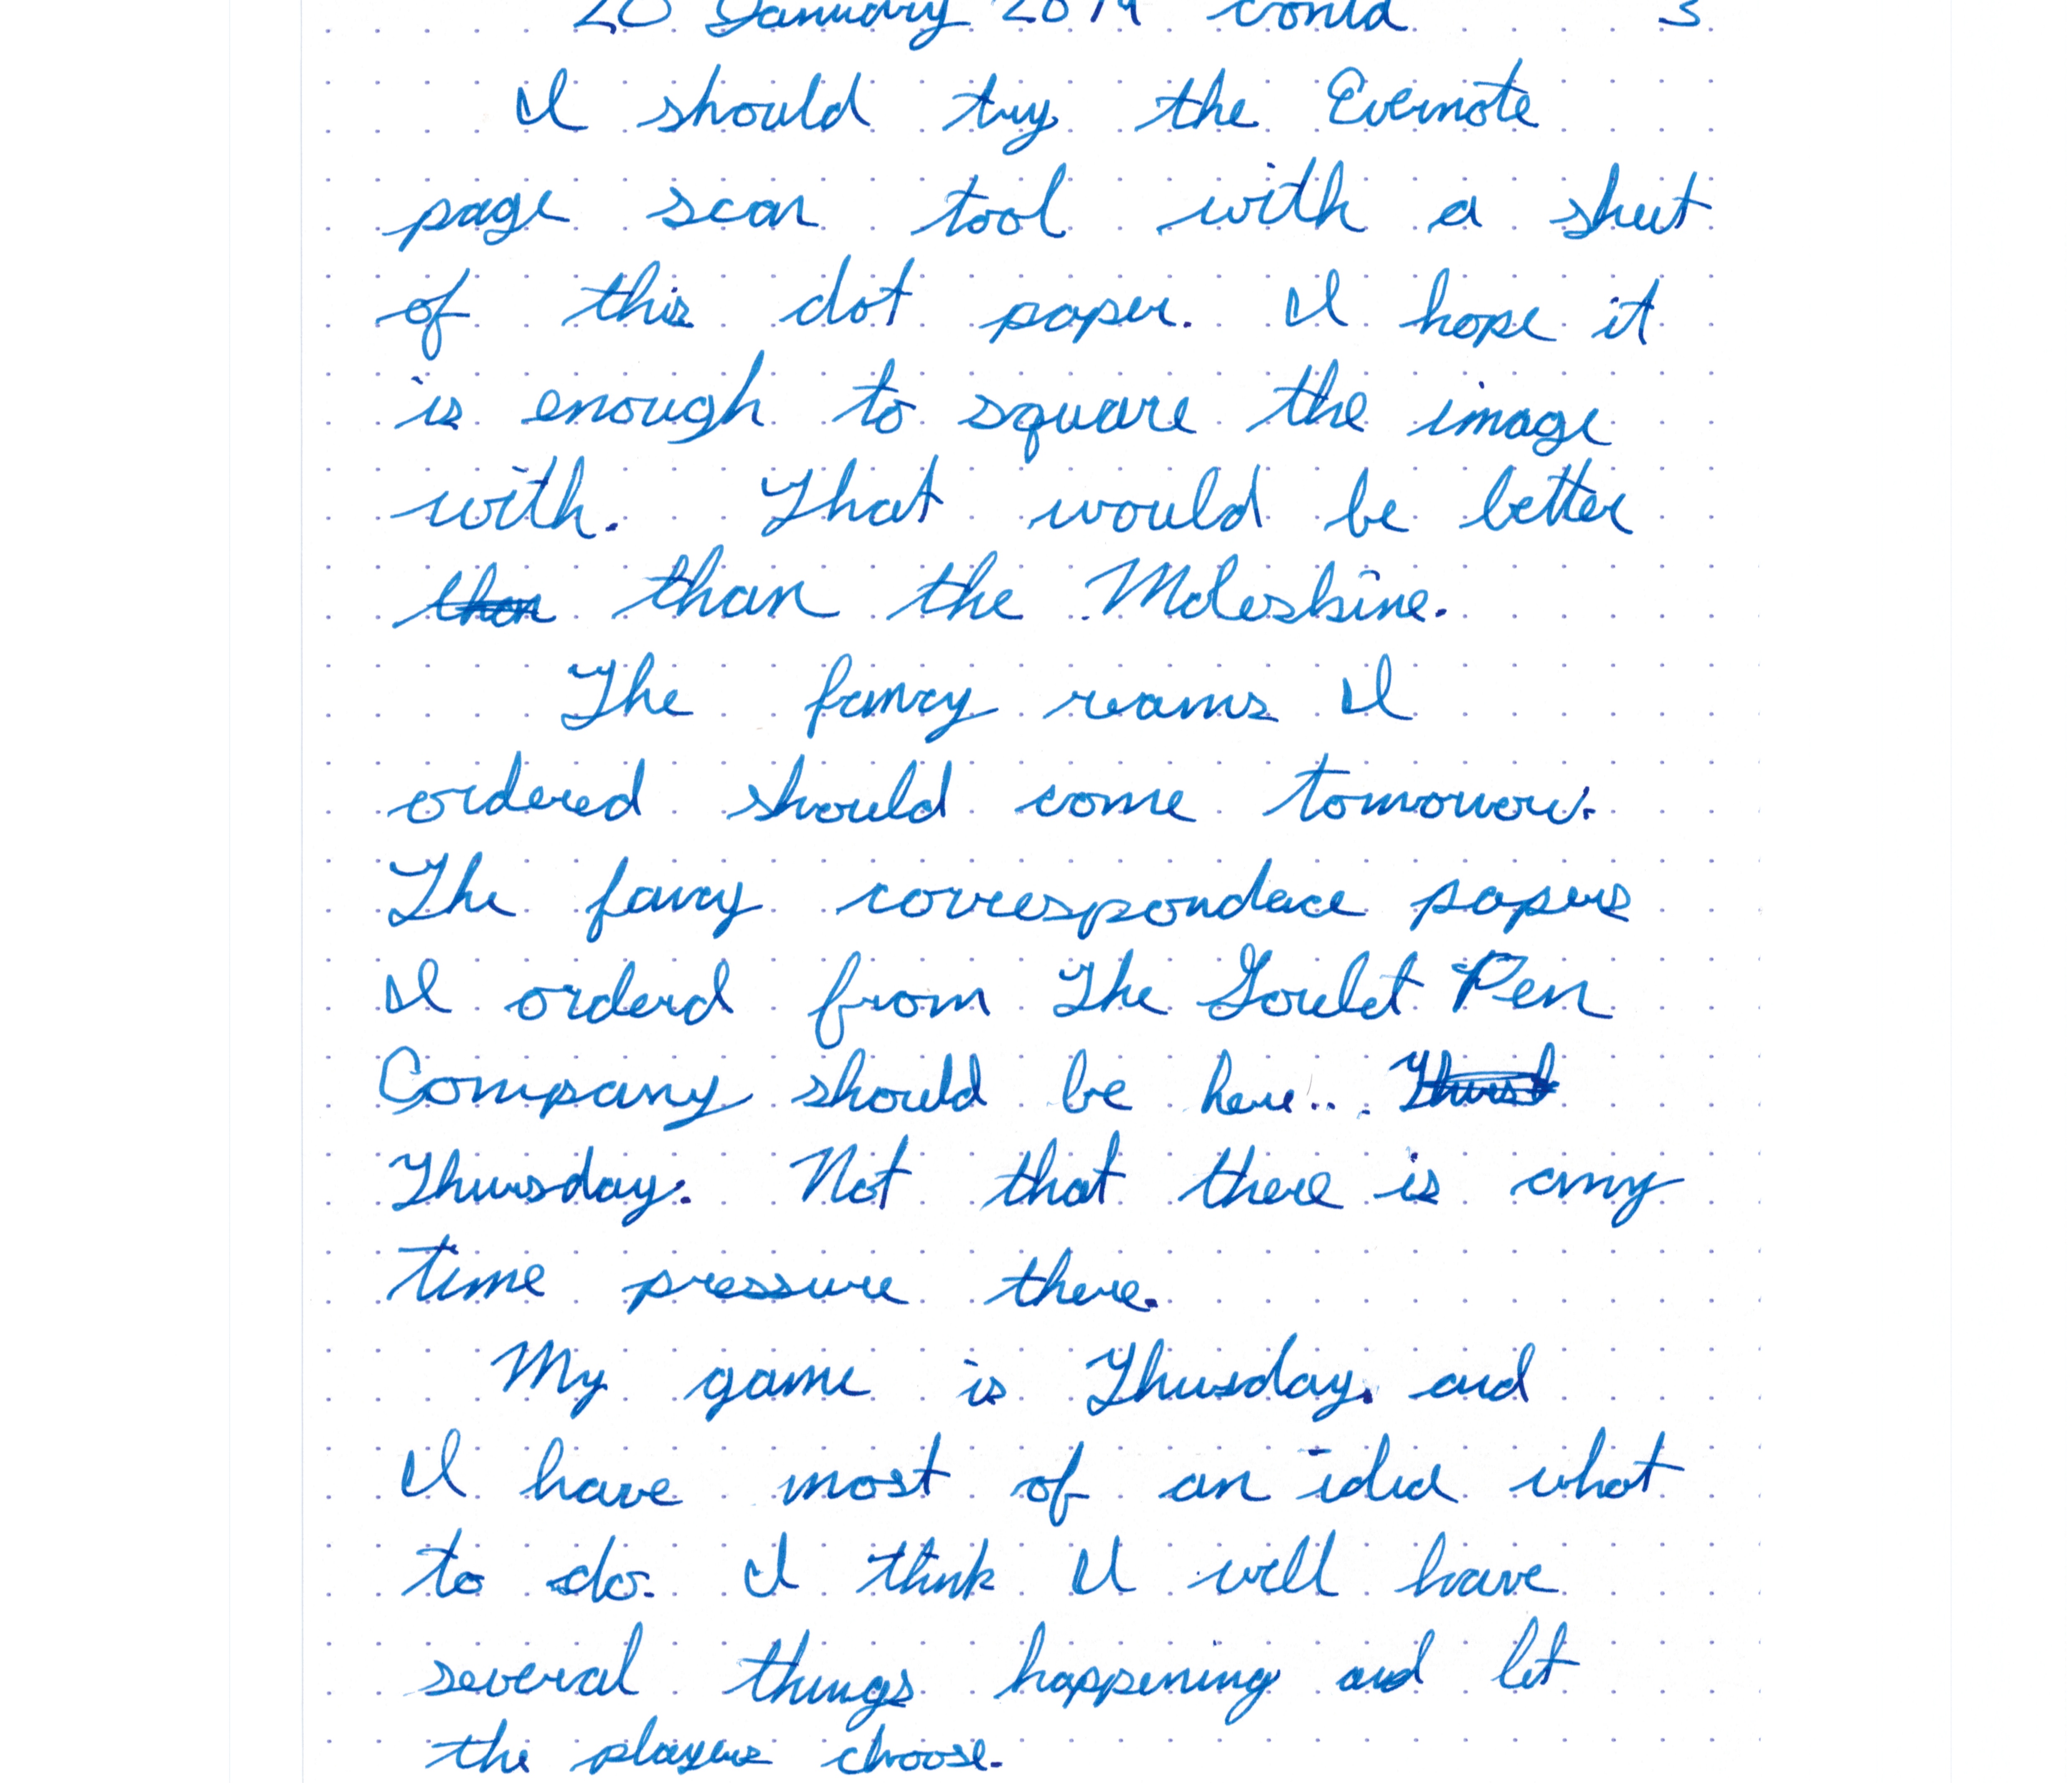 20 January 2014 cont'd 3
I should try the Evernote
page scan tool with a sheet
of this dot paper. I hope it
is enough to square the image
with. That would be better
than than the Moleskine.
The fancy reams I
ordered should come tomorrow.
The fancy correspondace papers
I orderd from The Goulet Pen
Company should be here... Thurst
Thursday. Not that there is any
time pressure there.
My game is Thusday. and
I have most of an idea what
to do. I think I will have
several things happening and let
the players choose.